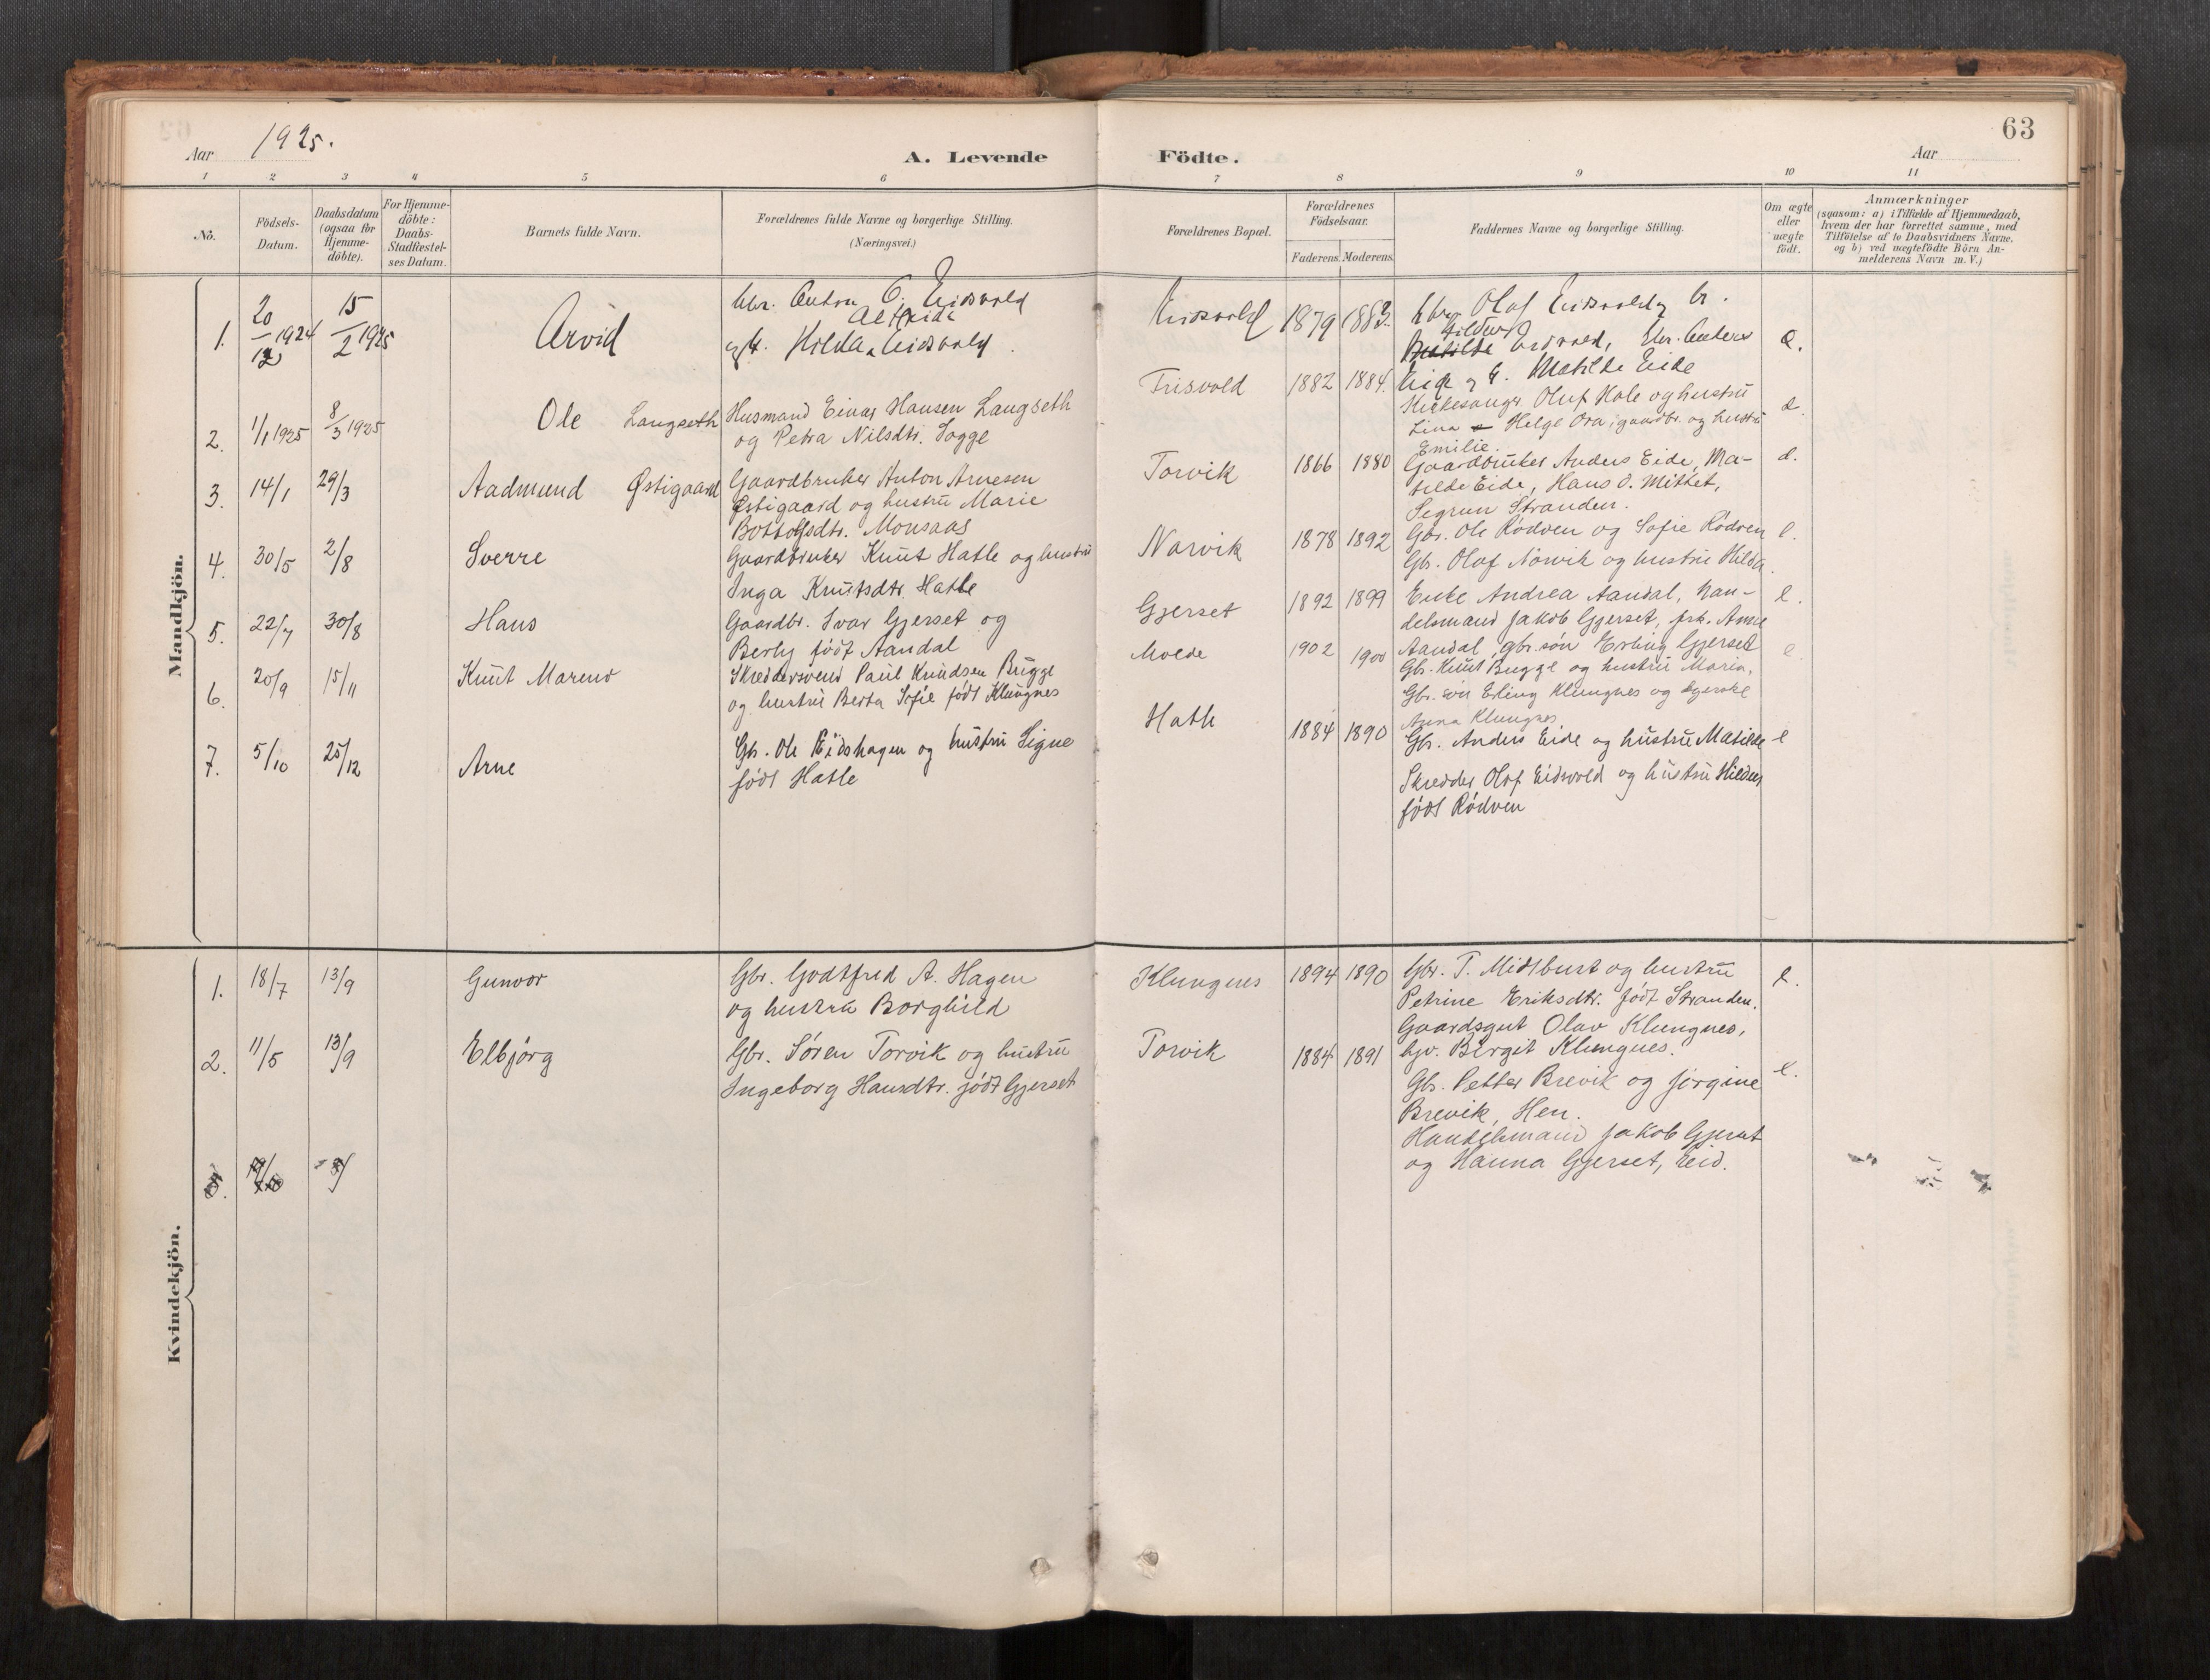 63
Aar 1925.
A. Levende
Födte.
Aar
1 2 3 4 5 6 7 8 9 10 11
No.
Födsels-
Datum.
Daabsdatum
(ogsaa for
Hjemme-
döbte).
For Hjemme-
döbte:
Daabs-
Stadfæstel-
ses Datum.
Barnets fulde Navn.
Forældrenes fulde Navne og borgerlige Stilling.
(Næringsvei.)
Forældrenes Bopæl.
Forældrenes
Födselsaar.
Faderens. Moderens.
Faddernes Navne og borgerlige Stilling.
Om ægte
eller
uægte
födt.
Anmærkninger
(saasom: a) i Tilfælde af Hjemmedaab,
hvem der har forrettet samme, med
Tilföielse af to Daabsvidners Navne,
og b) ved uægtefödte Börn An-
melderens Navn m. V.)
Mandkjön.
1. 20/12 1924 15/2 1925
Arvid
Gbr. Anton O. Eidsvold
og h. Hilda Eidsvold.
Eidsvold 1879 1883.
Gbr. Olaf Eidsvold og h.
Hildur Eidsvold, Gbr. Anders
Eide og h. Matilde Eide
e.
2. 1/1 1925 8/3 1925
Ole Langseth
Husmand Einar Hansen Langseth
og Petra Nilsdtr. Sogge
Frisvold 1882 1884.
Kirkesanger Oluf Hole og hustru
Lina Helge Ora, gaardbr. og hustru
Emilie.
e.
3. 14/1 29/3
Aadmund Østigaard
Gaardbruker Anton Arnesen
Østigaard og hustru Marie
Bottolfsdtr. Monsaas
Torvik 1866 1880
Gaardbruker Anders Eide, Ma-
tilde Eide, Hans O. Mittet,
Segrun Stranden.
e.
4. 30/5 2/8
Sverre
Gaardbruker Knut Hatle og hustru
Inga Knutsdtr. Hatle
Norvik 1878 1892
Gbr. Ole Rødven og Sofie Rødven
Gbr. Olaf Norvik og hustru Hilda.
e.
5. 22/7 30/8
Hans
Gaardbr. Ivar Gjerset og
Berly født Aandal
Gjerset 1892 1899
Enke Andrea Aandal, han-
delsmand Jakob Gjerset, frk. Anne
Aandal, gbr.søn Erling Gjerset
e.
6. 20/9 15/11
Knut Mareno
Skreddersvend Paul Knudsen Bugge
og hustru Berta Sofie født Klungnes
Molde 1902 1900
Gbr. Knut Bugge og hustru Maria.
Gbr. søn Erling Klungnes og syerske
Anna Klungnes
e
7. 5/10 25/12
Arne
Gbr. Ole Eidshagen og hustru Signe
født Hatle
Hatle 1884 1890
Gbr. Anders Eide og hustru Matilde
Skredder Olaf Eidsvold og hustru Hildur
født Rødven
e
Kvindekjön.
1. 18/7 13/9
Gunvor
Gbr. Godtfred A. Hagen
og hustru Borghild
Klungnes 1894 1890
Gbr. T. Midtbust og hustru
Petrine Eriksdtr. født Stranden.
Gaardsgut Olav Klungnes,
Birgit Klungnes.
e.
2. 11/5 13/9
Elbjørg
Gbr. Søren Torvik og hustru
Ingeborg Hansdtr. født Gjerset
Torvik 1884 1891
Gbr. Petter Brevik og Jørgine
Brevik, Hen.
Handelsmand Jakob Gjerset
og Hanna Gjerset, Eid.
e.